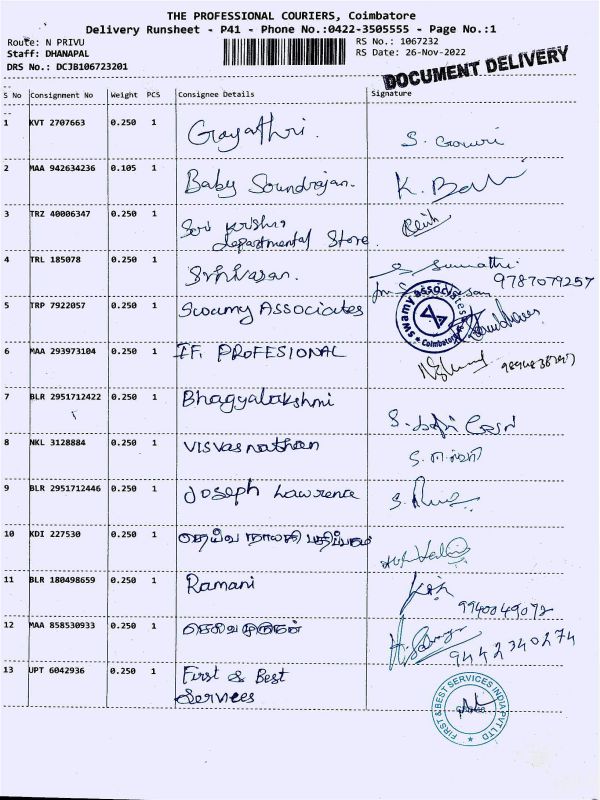 THE PROFESSIONAL COURIERS, Coimbatore
Delivery Runsheet - P41 - Phone No.:0422-3505555 - Page No.:1
Route: N PRIVU
RS No.: 1067232
Staff: DHANAPAL
RS Date: 26-Nov-2022
DRS No.: DCJB106723201
DOCUMENT DELIVERY
S No Consignment No Weight PCS Consignee Details Signature
1 KVT 2707663 0.250 1 Gayathri. S. Gowri
2 MAA 942634236 0.105 1 Baby Soundrajan. K.
3 TRZ 40006347 0.250 1 Sri Krishna
departmental Store.
4 TRL 185078 0.250 1 Srinivasan. Sumathi
9787079257
5 TRP 7922057 0.250 1 Swamy Associates
swamy associates
Coimbatore
6 MAA 293973104 0.250 1 IFI PROFESIONAL
7 BLR 2951712422 0.250 1 Bhagyalakshmi
8 NKL 3128884 0.250 1 Visvasnathan
9 BLR 2951712446 0.250 1 Joseph Lawrence
10 KDI 227530 0.250 1 தெய்வ
11 BLR 180498659 0.250 1 Ramani
9940049072
12 MAA 858530933 0.250 1 செல்வமுருகன்
9442340274
13 UPT 6042936 0.250 1 First & Best
Services
FIRST & BEST SERVICES INDIA PVT LTD